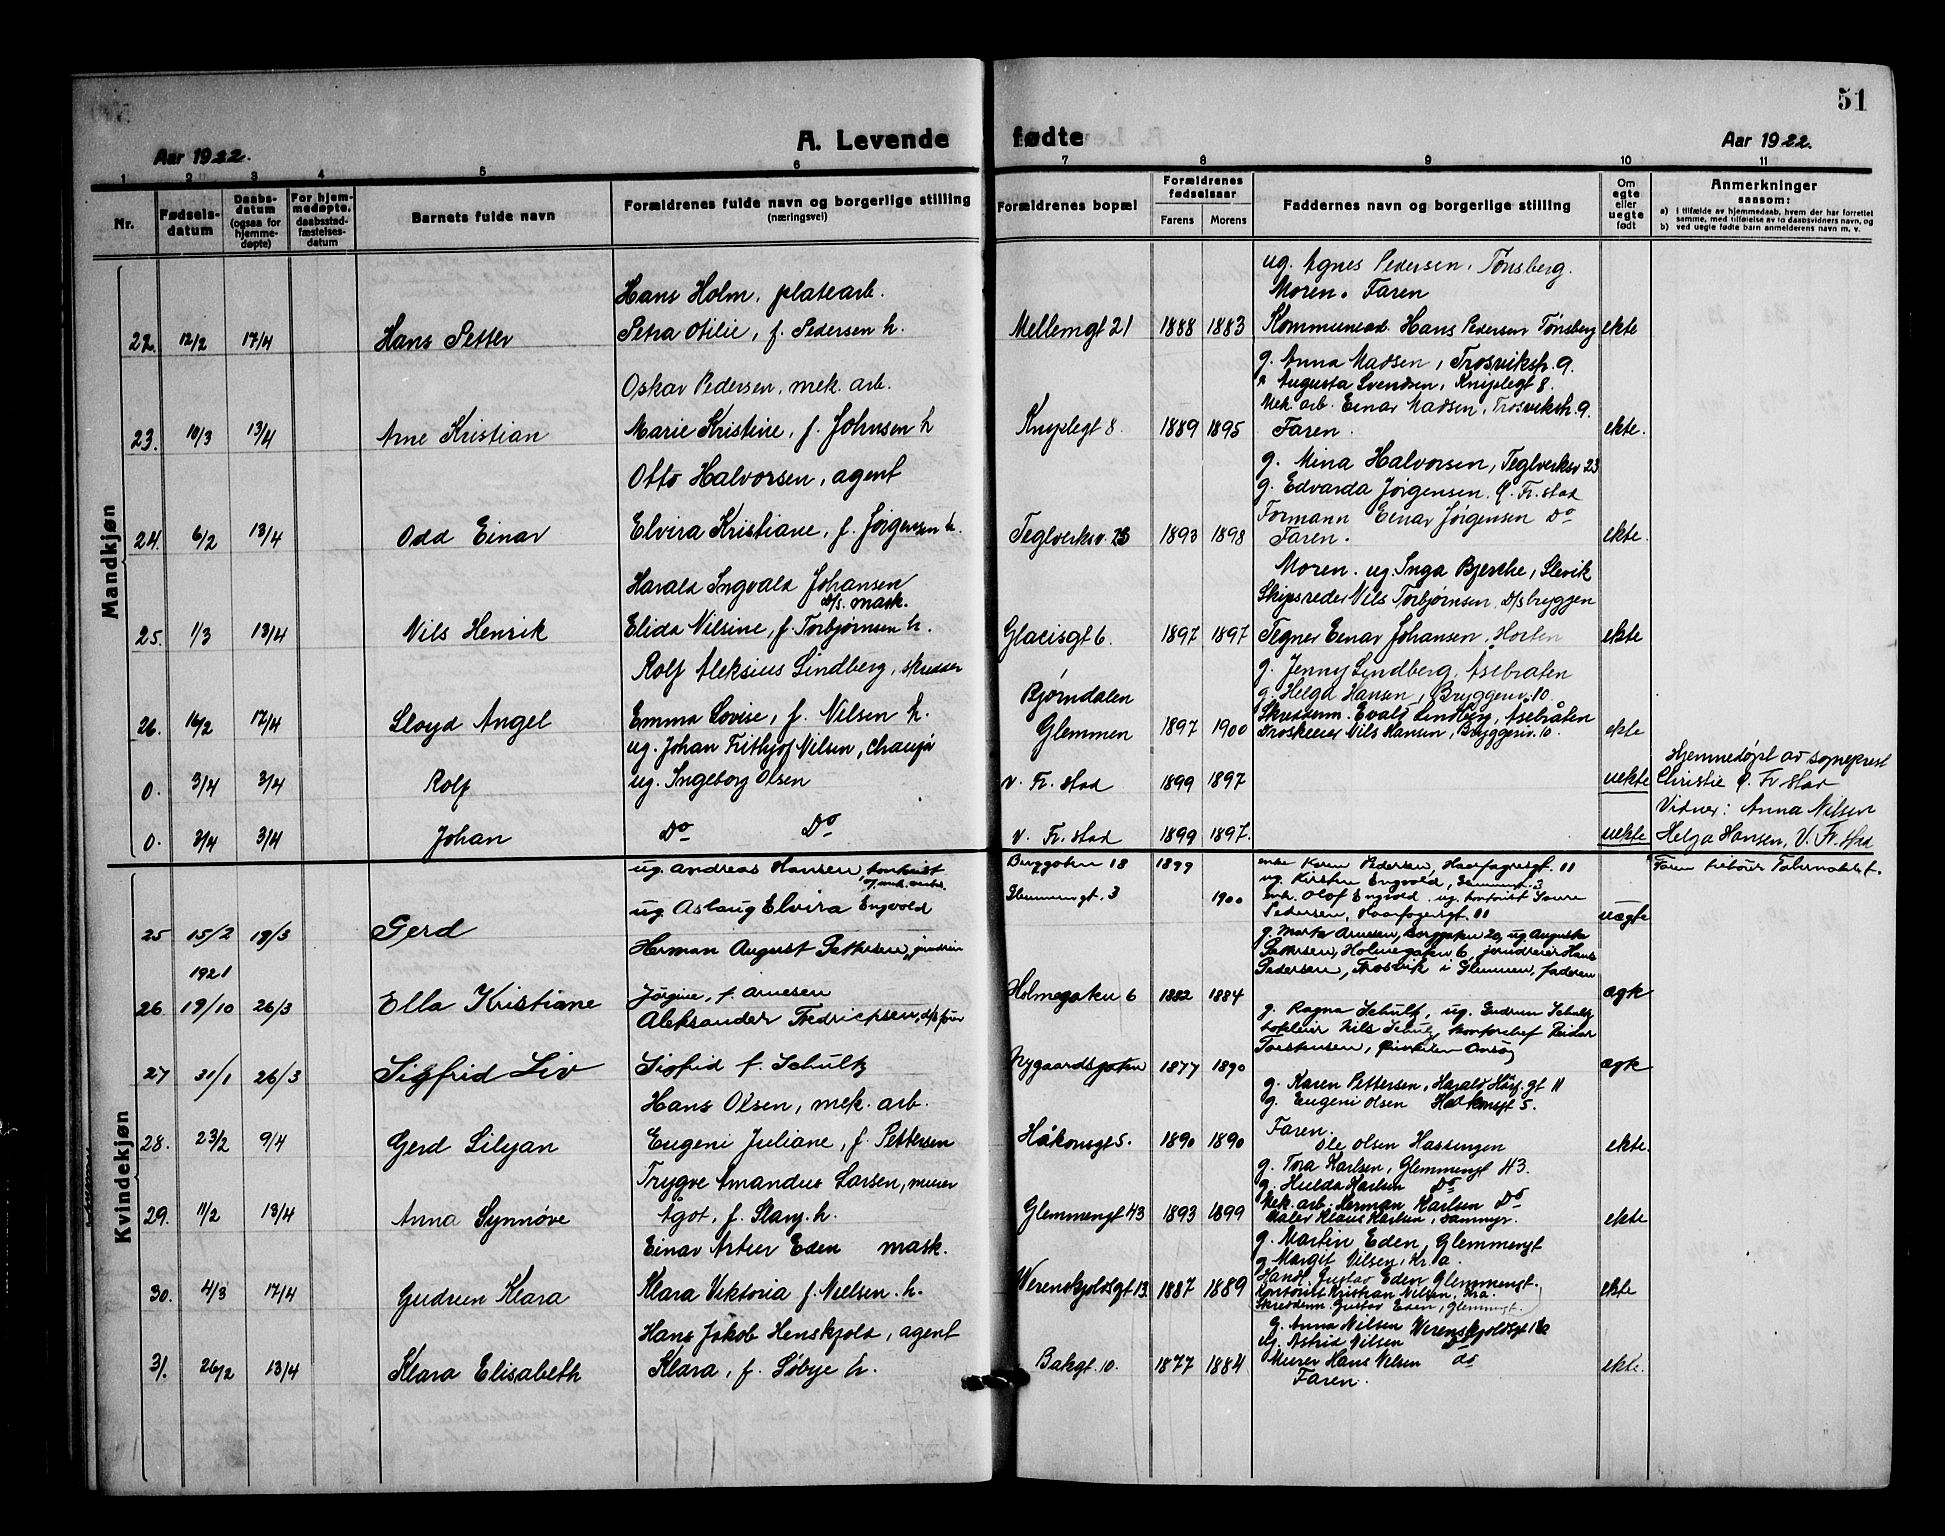 51
A. Levende fødte
Aar 1922.
Aar 1922.
1 2 3 4 5 6 7 8 9 10 11
Nr.
Fødsels-
datum
Daabs-
datum
(ogsaa for
hjemme-
døpte)
For hjem-
medøpte,
daabsstad-
fæstelses-
datum
Barnets fulde navn
Forældrenes fulde navn og borgerlige stilling
(næringsvei)
Forældrenes bopæl
Forældrenes
fødselsaar
Farens Morens
Faddernes navn og borgerlige stilling
Om
egte
eller
uegte
født
Anmerkninger
saasom:
a) i tilfælde av hjemmedaab, hvem der har forrettet
samme, med tilføielse av to daabsvidners navn, og
b) ved uegte fødte barn anmelderens navn m. v.
Mandkjøn
22. 12/2 17/4 Hans Petter
Hans Holm, platearb.
Petra Otilie, f. Pedersen h.
Mellemgt 21 1888 1883
ug. Agnes Pedersen, Tønsberg.
Moren. Faren
Kommunearb. Hans Pedersen Tønsberg
ekte
23. 10/3 13/4 Arne Kristian
Oskar Pedersen, mek. arb.
Marie Kristine, f. Johnsen h
Kniplegt 8. 1889 1895
g. Anna Madsen, Trosvikstr. 9.
" Augusta Svendsen, Kniplegt 8.
Mek. arb. Einar Madsen, Trosvikstr. 9.
Faren.
ekte.
24. 6/2 13/4 Odd Einar
Otto Halvorsen, agent
Elvira Kristiane, f. Jørgensen h.
Teglverksv. 23 1893 1898
g. Mina Halvorsen, Teglverksv 23
g. Edvarda Jørgensen, Ø. Fr. stad
Formann Einar Jørgensen Do
Faren.
ekte.
25. 1/3 13/4 Nils Henrik
Harald Ingvald Johansen
D/S. mask.
Elida Nilsine, f. Torbjørnsen h.
Glacisgt 6. 1897 1897
Moren. ug. Inga Bjerche, Slevik
Skipsreder Nils Torbjørnsen, D/S bryggen
Tegner Einar Johansen, Horten
ekte
26. 16/2 17/4 Lloyd Angel
Rolf Aleksius Lindberg, skredder
Emma Lovise, f. Nilsen h.
Bjørndalen
Glemmen 1897 1900
g. Jenny Lindberg, Åsebråten
g. Helga Hansen, Bryggeriv. 10.
Skreddem. Evald Lindberg, Åsebråten
Droskeeier Nils Hansen, Bryggeriv. 10.
ekte
0. 3/4 3/4 Rolf
ug. Johan Frithjof Nilsen, chauffør
ug. Ingeborg Olsen
v. Fr. stad 1899 1897
uekte
Hjemmedøpt av sogneprest
Christie Ø. Fr. stad
Vidner: Anna Nilsen
0. 3/4 3/4 Johan
Do Do
v. Fr. stad 1899 1897.
uekte
Helga Hansen, V. Fr. stad
Kvindekjøn
25 15/2 19/3 Gerd
ug. Andreas Hansen, kontorist
ug. Aslaug Elvira Engvold
Berggaten 18 1899
Glemmengt. 3 1900
enke Karen Pedersen, Haarfagresgt. 11
ug. Kirsten Engvold, Glemmengt. 3
Olof Engvold, ug. kontorist
Pedersen, Haarfagresgt. 11
uægte
1921
26 19/10 26/3 Ella Kristiane
Herman August Pettersen, jerndreier
Jørgine, f. Arnesen
Holmegaten 6 1882 1884
g. Marta Arnesen, Borggaten 20, ug. Augusta
Pettersen, Holmegaten 6, jerndreier Hans
Pedersen, Trosvik i Glemmen, faderen
ægte
27 31/1 26/3 Sigfrid Liv
Aleksander Fredriksen, d/s fører
Sigfrid f. Schultz
Nygaardsgaten 1877 1890
g. Ragna Schultz, ug. Gudrun Schultz
Nils Schultz, kontorchef Reidar
Torstensen,
ægte
28. 23/2 9/4 Gerd Lilyan
Hans Olsen, mek. arb.
Eugeni Juliane, f. Pettersen
Håkonsgt 5. 1890 1890
g. Karen Pettersen, Harald Hårf. gt 11
g. Eugeni Olsen Håkonsgt 5.
Faren.
Ole Olsen Hassingen
ekte.
29. 11/2 13/4 Anna Synnøve
Trygve Amandus Larsen, murer
Ågot, f. Slang h.
Glemmengt 43 1893 1899
g. Tora Karlsen, Glemmengt 43.
g. Hulda Karlsen Do
Mek. arb. Herman Karlsen Do
Maler Klaus Karlsen, sammst.
ekte
30. 4/3 17/4 Gudrun Klara
Einar Artur Eden mask.
Klara Viktoria f. Nielsen. h.
Werenskjoldsgt 13. 1887 1889
g. Martin Eden, Glemmengt
g. Margit Nilsen, Kr.a.
Handl. Gustav Eden Glemmengt.
Kontorist Kristian Nilsen, Kra.
Skreddem. Gustav Eden, Glemmengt.
ekte
31. 26/2 13/4 Klara Elisabeth
Hans Jakob Henskjold, agent
Klara, f. Søbye h.
Bakgt. 10. 1877 1884
g. Anna Nilsen Werenskjoldsgt 16
ug. Astrid Nilsen Do
Murer Hans Nilsen do
Faren.
ekte.